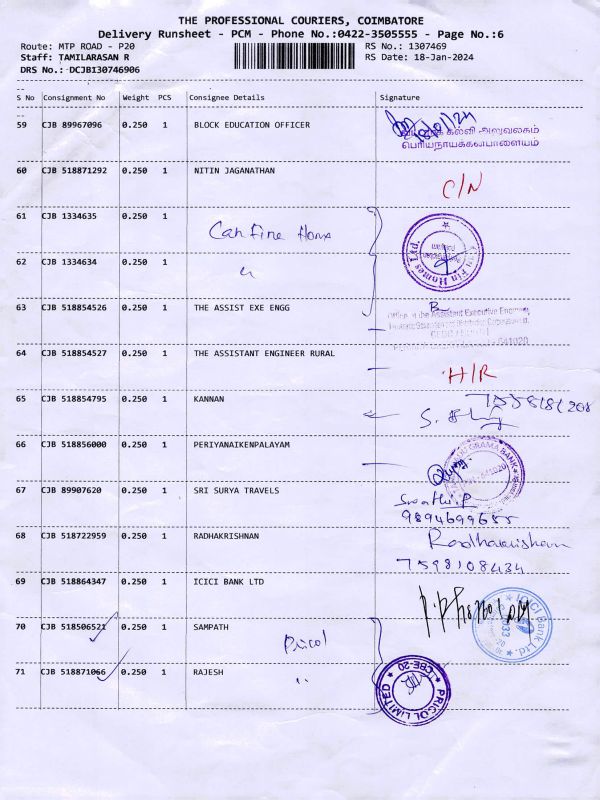 THE PROFESSIONAL COURIERS, COIMBATORE
Delivery Runsheet - PCM - Phone No.:0422-3505555 - Page No.:6
Route: MTP ROAD - P20
RS No.: 1307469
Staff: TAMILARASAN R
RS Date: 18-Jan-2024
DRS No.: DCJBI30746906
S No Consignment No Weight PCS Consignee Details Signature
59 CJB 89967096 0.250 1 BLOCK EDUCATION OFFICER
கல்வி அலுவலகம்
பெரியநாயக்கன்பாளையம்
60 CJB 518871292 0.250 1 NITIN JAGANATHAN C/N
61 CJB 1334635 0.250 1 Can Fine Home
Can Fin Homes Ltd.
62 CJB 1334634 0.250 1 "
63 CJB 518854526 0.250 1 THE ASSIST EXE ENGG
Office of the Assistant Executive Engineer
641020
64 CJB 518854527 0.250 1 THE ASSISTANT ENGINEER RURAL H/R
65 CJB 518854795 0.250 1 KANNAN
66 CJB 518856000 0.250 1 PERIYANAIKENPALAYAM
GRAMA BANK
641020
67 CJB 89907620 0.250 1 SRI SURYA TRAVELS Swathi.P
9894699655
68 CJB 518722959 0.250 1 RADHAKRISHNAN Radhakrishnan
7598108434
69 CJB 518864347 0.250 1 ICICI BANK LTD
ICICI Bank Ltd.
70 CJB 518506521 0.250 1 SAMPATH Pricol
71 CJB 518871066 0.250 1 RAJESH "
PRICOL LIMITED CBE-20